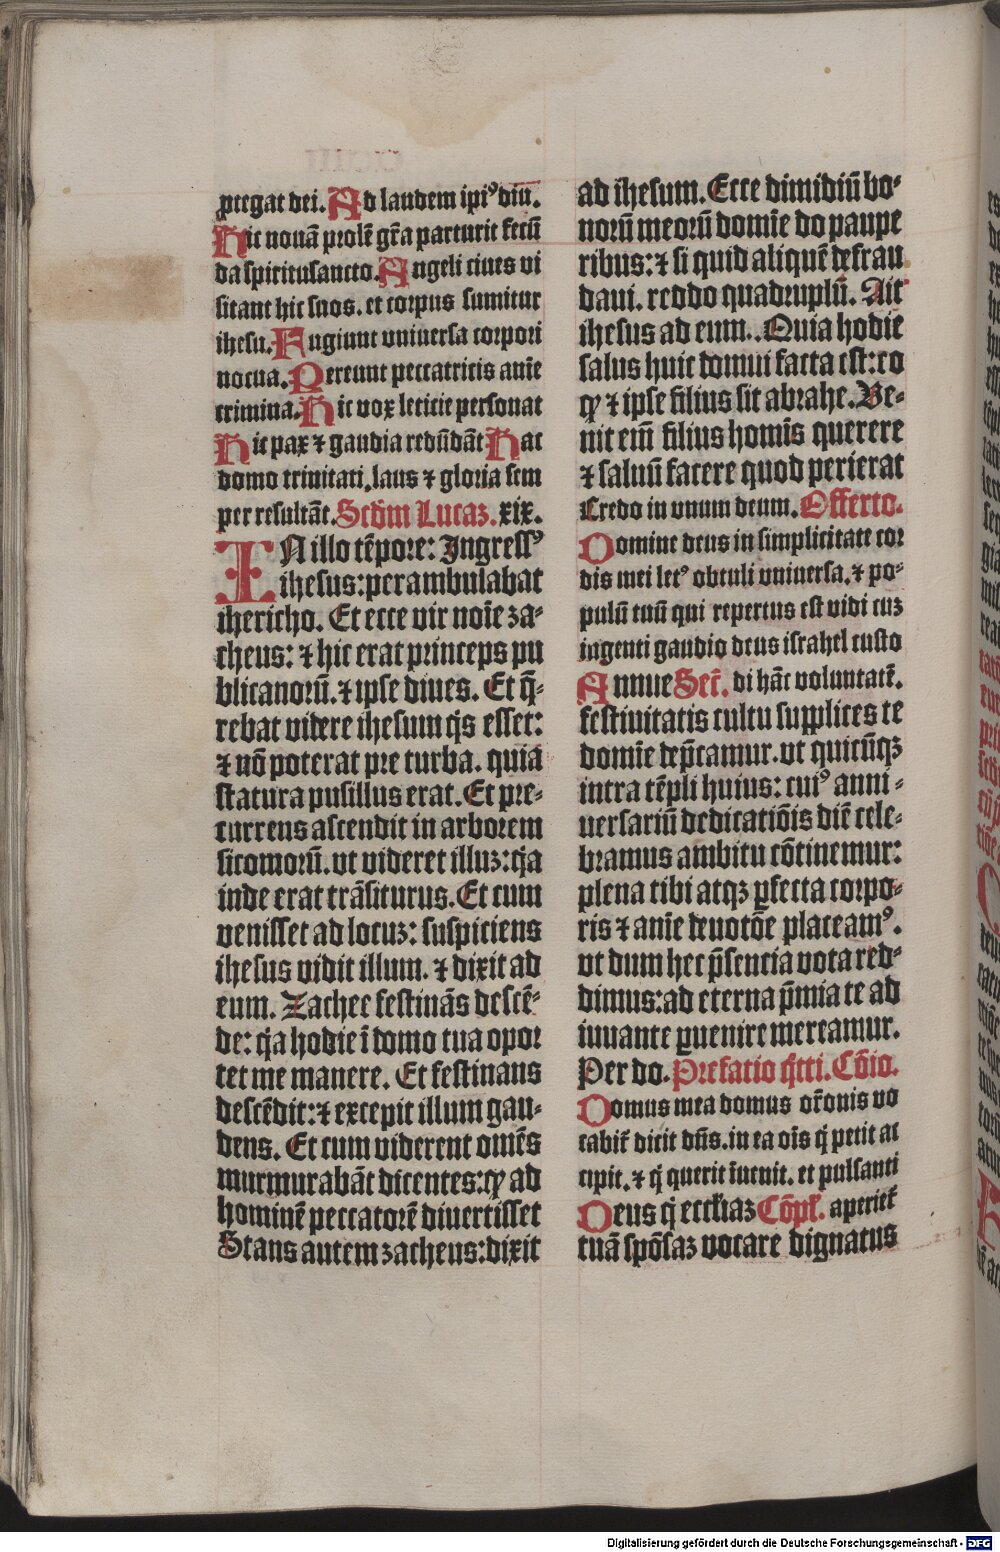 ꝓtegat dei. Ad laudem ipiꝰ diū.
Hic nouā prolē gr̄a parturit fecū
da spiritusancto. Angeli ciues vi
sitant hic suos. et corpus sumitur
ihesu. Fugiunt vniuersa corpori
nocua. Pereunt peccatricis anīe
crimina. Hic vox leticie personat
Hic pax ⁊ gaudia redūdāt Hac
domo trinitati. laus ⁊ gloria sem
per resultāt. Scd̄m Lucaꝫ. xix.
IN illo tēpore: Ingressꝰ
ihesus: perambulabat
ihericho. Et ecce vir noīe za-
cheus: ⁊ hic erat princeps pu
blicanorū. ⁊ ipse diues. Et q̄-
rebat videre ihesum qi̇s esset:
⁊ nō poterat pre turba. quia
statura pusillus erat. Et pre-
currens ascendit in arborem
sicomorū. vt videret illuꝫ: qi̇a
inde erat trāsiturus. Et cum
venisset ad locuꝫ: suspiciens
ihesus vidit illum. ⁊ dixit ad
eum. Zachee festinās descē-
de: qi̇a hodie ī domo tua opor
tet me manere. Et festinans
descēdit: ⁊ excepit illum gau-
dens. Et cum viderent omēs
murmurabāt dicentes: ꝙ ad
hominē peccatorē diuertisset
Stans autem zacheus: dixit
ad ihesum. Ecce dimidiū bo-
norū meorū domīe do paupe
ribus: ⁊ si quid aliquē defrau
daui. reddo quadruplū. Ait
ihesus ad eum.. Quia hodie
salus huic domui facta est: eo
ꝙ ⁊ ipse filius sit abrahe. Ve-
nit eiī filius homīs querere
⁊ saluū facere quod perierat
Credo in vnum deum. Offerto.
Domine deus in simplicitate cor
dis mei letꝰ obtuli vniuersa. ⁊ po-
pulū tuū qui repertus est vidi cuꝫ
ingenti gaudio deus israhel custo
Annue Secr̄. di hāc voluntatē.
festiuitatis cultu supplices te
domīe dep̄camur. vt quicūqꝫ
intra tēpli huius: cuiꝰ anni-
uersariū dedicatiōis diē cele-
bramus ambitu cōtinemur:
plena tibi atqꝫ ꝑfecta corpo-
ris ⁊ anīe deuotōe placeamꝰ.
vt dum hec p̄sencia vota red-
dimus: ad eterna p̄mia te ad
iuuante ꝑuenire mereamur.
Per do. Prefatio q̄tti. Cōio.
Domus mea domus or̄onis vo
cabit̄ dicit dn̄s. in ea oīs qi̇ petit ac
cipit. ⁊ qi̇ querit īuenit. et pulsanti
Deus qi̇ eccl̄iaꝫ Cōpl̄. aperiet̄
tuā spōsaꝫ vocare dignatus
Digitalisierung gefördert durch die Deutsche Forschungsgemeinschaft - DFG